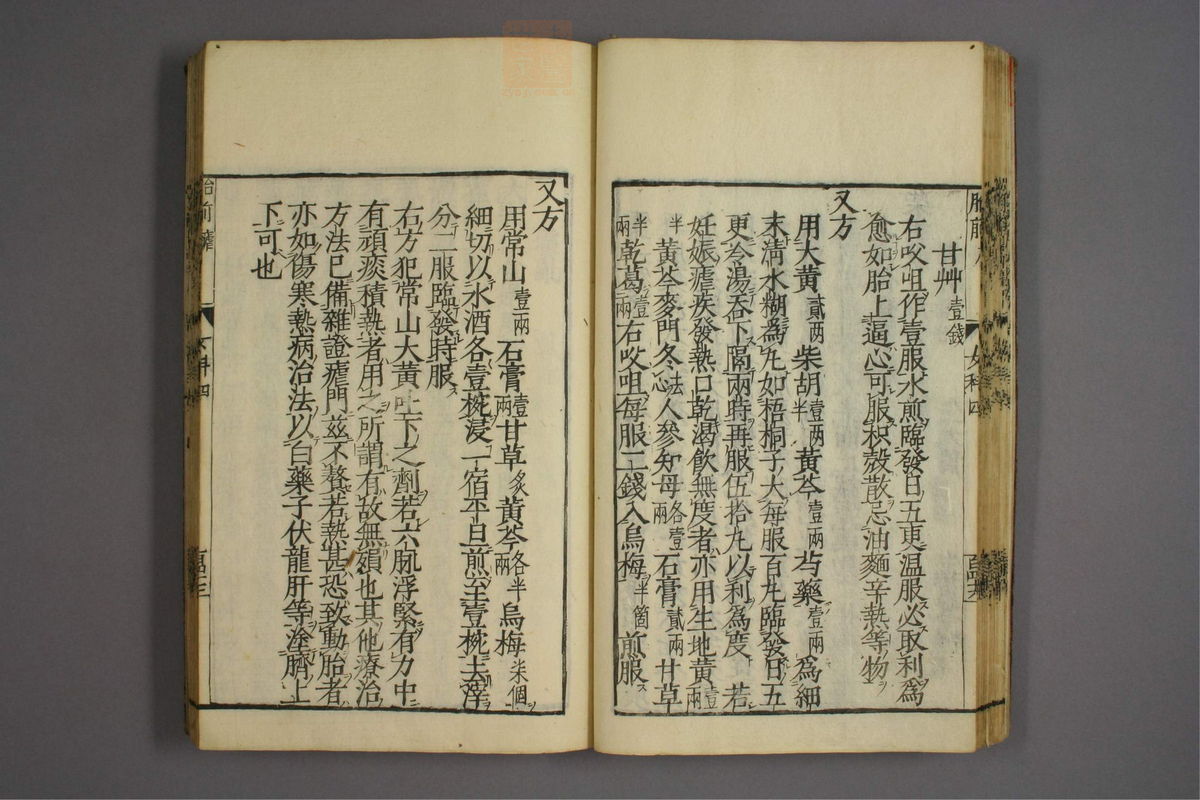 甘艸壹錢
右㕮咀作壹服水煎臨發日五更温服必取利爲
愈如胎上逼心可服枳殻散忌油麵辛熱等物
又方
用大黄貳两柴胡壹两半黄芩壹两芍藥壹兩爲細
末淸水糊爲丸如梧桐子大每服百丸臨發日五
更冷湯吞下隔兩時再服伍拾丸以利爲度　若
妊娠瘧疾發熱口乾渴飮無度者亦用生地黄壹兩
半黄芩麥門冬去心人參知母各壹兩石膏貳兩甘草
半兩乾葛壹兩右㕮咀每服二錢入烏梅半箇煎服
女科四
又方
用常山壹兩石膏壹兩甘草炙黄芩各半兩烏梅柒個
細切以水酒各壹椀浸一宿平旦煎至壹椀去滓
分二服臨發時服
右方犯常山大黄吐下之劑若六脉浮緊有力中
有頑痰積熱者用之所謂有故無䫫也其他療治
方法已備雜證瘧門茲不贅若熱甚恐致動胎者
亦如傷寒熱病治法以白藥子伏龍肝等塗臍上
下可也
胎前
女科四